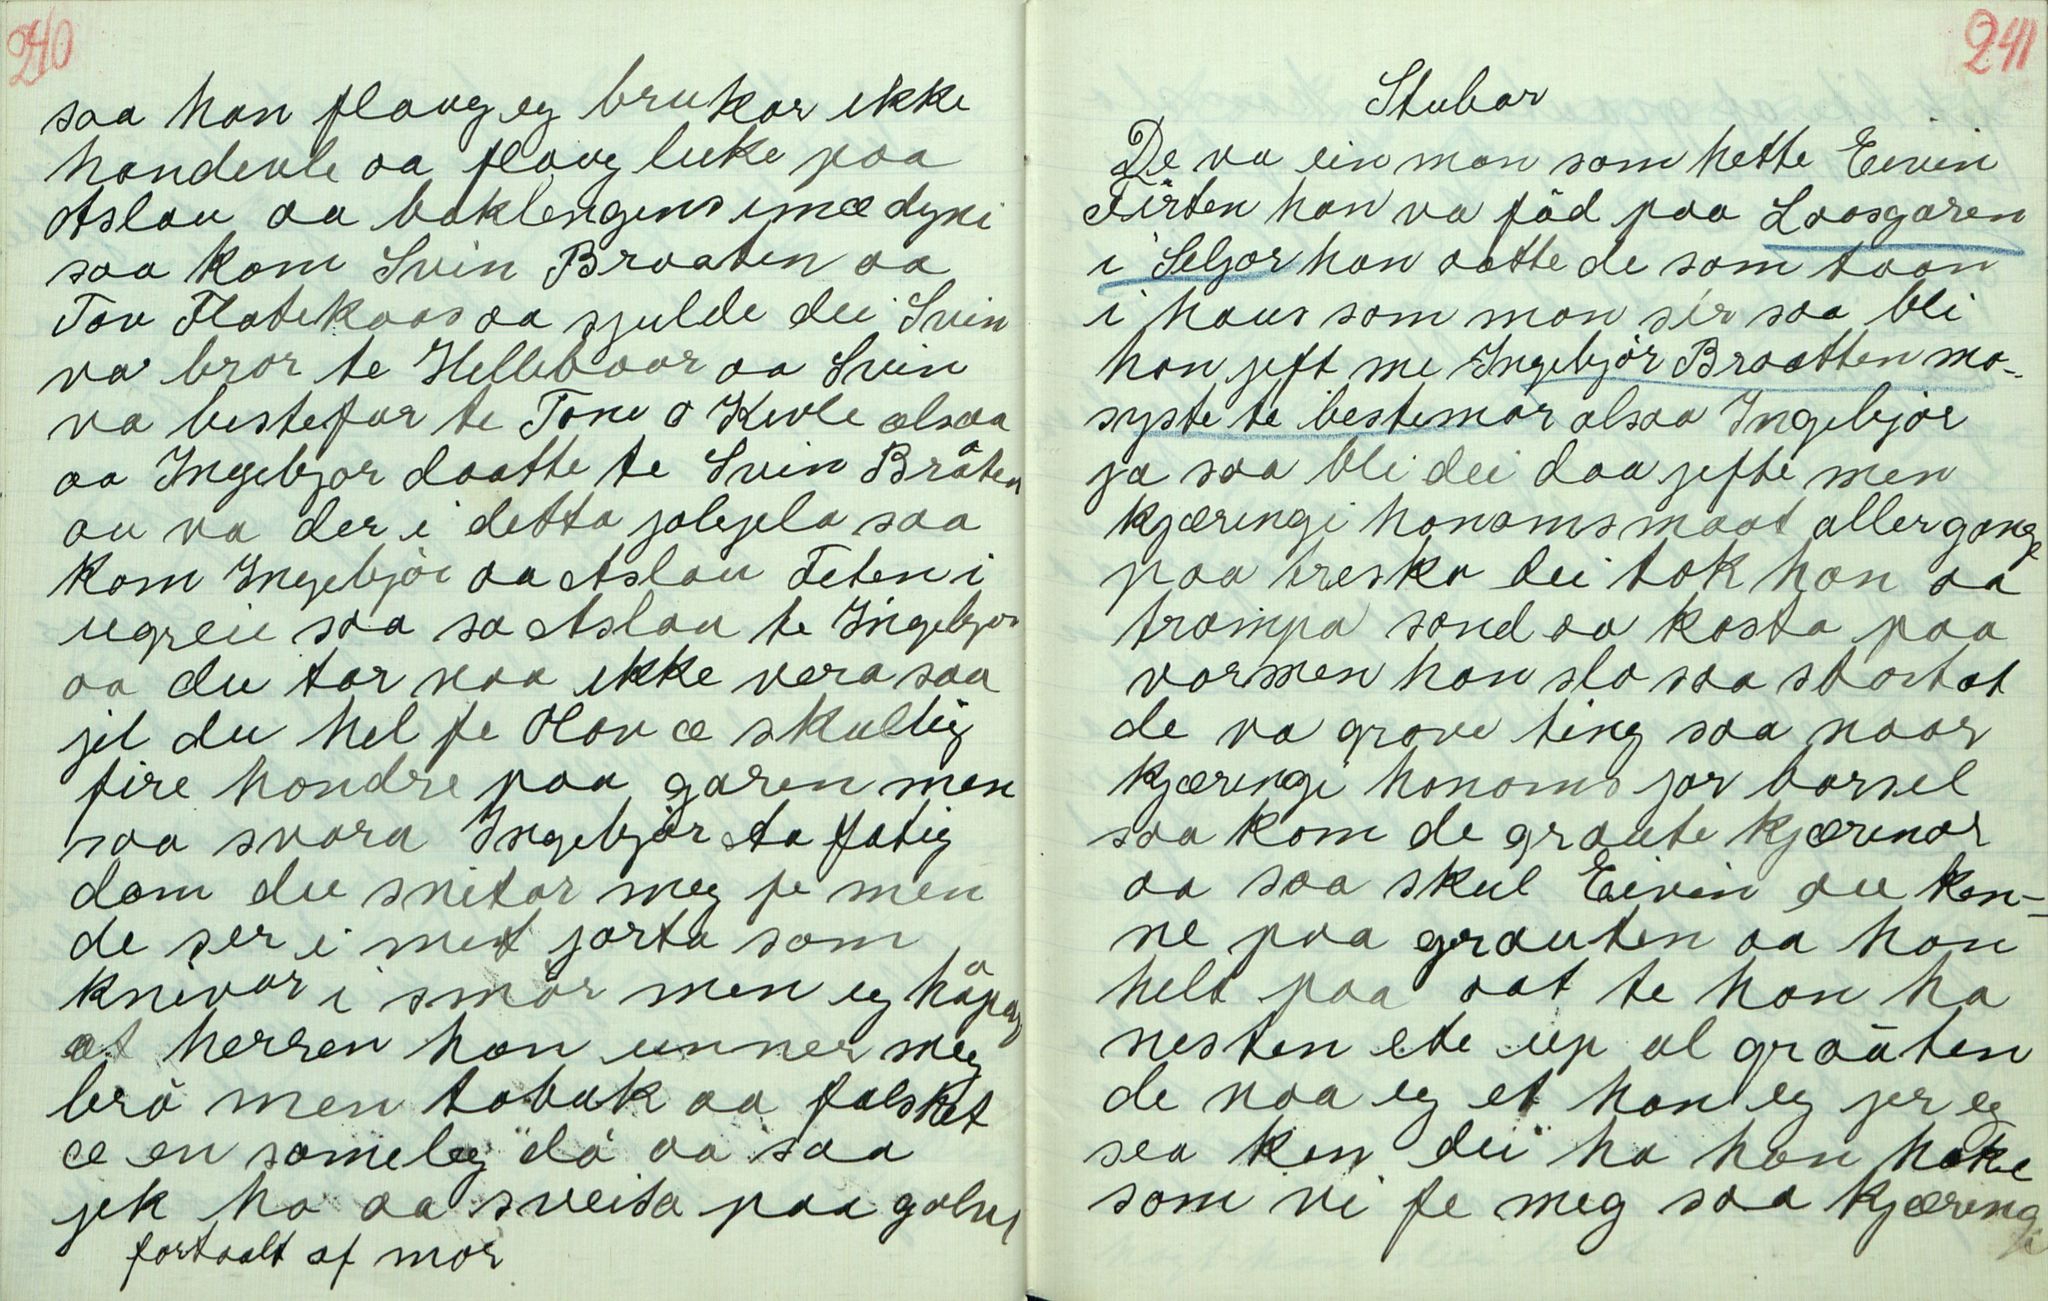 240
saa han flaug eg brukar ikke
handevle aa flaug like paa
Aslau aa baklengens imæ dyni
saa kom Svin Braaten aa
Tov Flatekaas aa sjulde dei Svin
va bror te Hellebaar aa Svin
va bestefar te Tone o Kivle alsaa
aa Ingebjor daatte te Svin Bråten
au va der i detta jolejela saa
kom Ingebjör aa Aslau Teten i
ugreie saa sa Aslau te Ingebjor
aa du tar naa ikke vera saa
jil du hel fe Olav æ skuldig
fire hondre paa garen men
saa svara Ingebjör Aa fatig
dom du snitar meg fe men
de ser i mit jorta som
knivar i smör men eg håpar
at herren han unner meg
brö men tobak aa falsket
æ en someleg då aa saa
jek ho aa sveisa paa golvet
fortaalt af mor
241
Stubar
De va ein man som hette Eivin
Tirten han va föd paa Laasgaren
i Seljor han aatte de som taan
i haus som man sir saa bli
han jeft me Ingebjör Braatten mo-
syste te bestemor alsaa Ingebjor
ja saa bli dei daa jefte men
kjæringi honoms maat aller gange
paa breska dei tok han aa
trampa sond aa kasta paa
varmen han slo saa stortat
de va grove ting saa naar
kjæringi honoms jor barsel
saa kom de graute kjærinar
aa saa skul Eivin au ken-
ne paa grauten aa han
helt paa aat te han ha
nesten ete up al graäten
de naa eg et han eg jer eg
sea ken dei ha han hake
som vi fe meg saa kjæringi